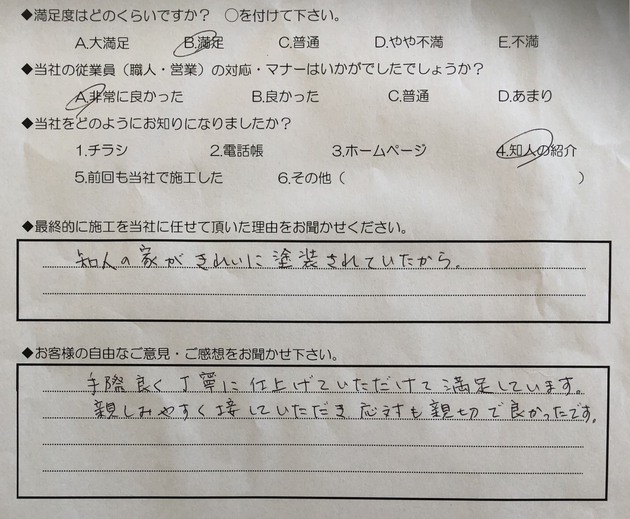 ◆満足度はどのくらいですか？ ○を付けて下さい。
A.大満足 B.満足 C.普通 D.やや不満 E.不満
◆当社の従業員（職人・営業）の対応・マナーはいかがでしたでしょうか？
A.非常に良かった B.良かった C.普通 D.あまり
◆当社をどのようにお知りになりましたか？
1.チラシ 2.電話帳 3.ホームページ 4.知人の紹介
5.前回も当社で施工した 6.その他（ ）
◆最終的に施工を当社に任せて頂いた理由をお聞かせください。
知人の家がきれいに塗装されていたから。
◆お客様の自由なご意見・ご感想をお聞かせ下さい。
手際良く丁寧に仕上げていただけて満足しています。
親しみやすく接していただき応対も親切で良かったです。